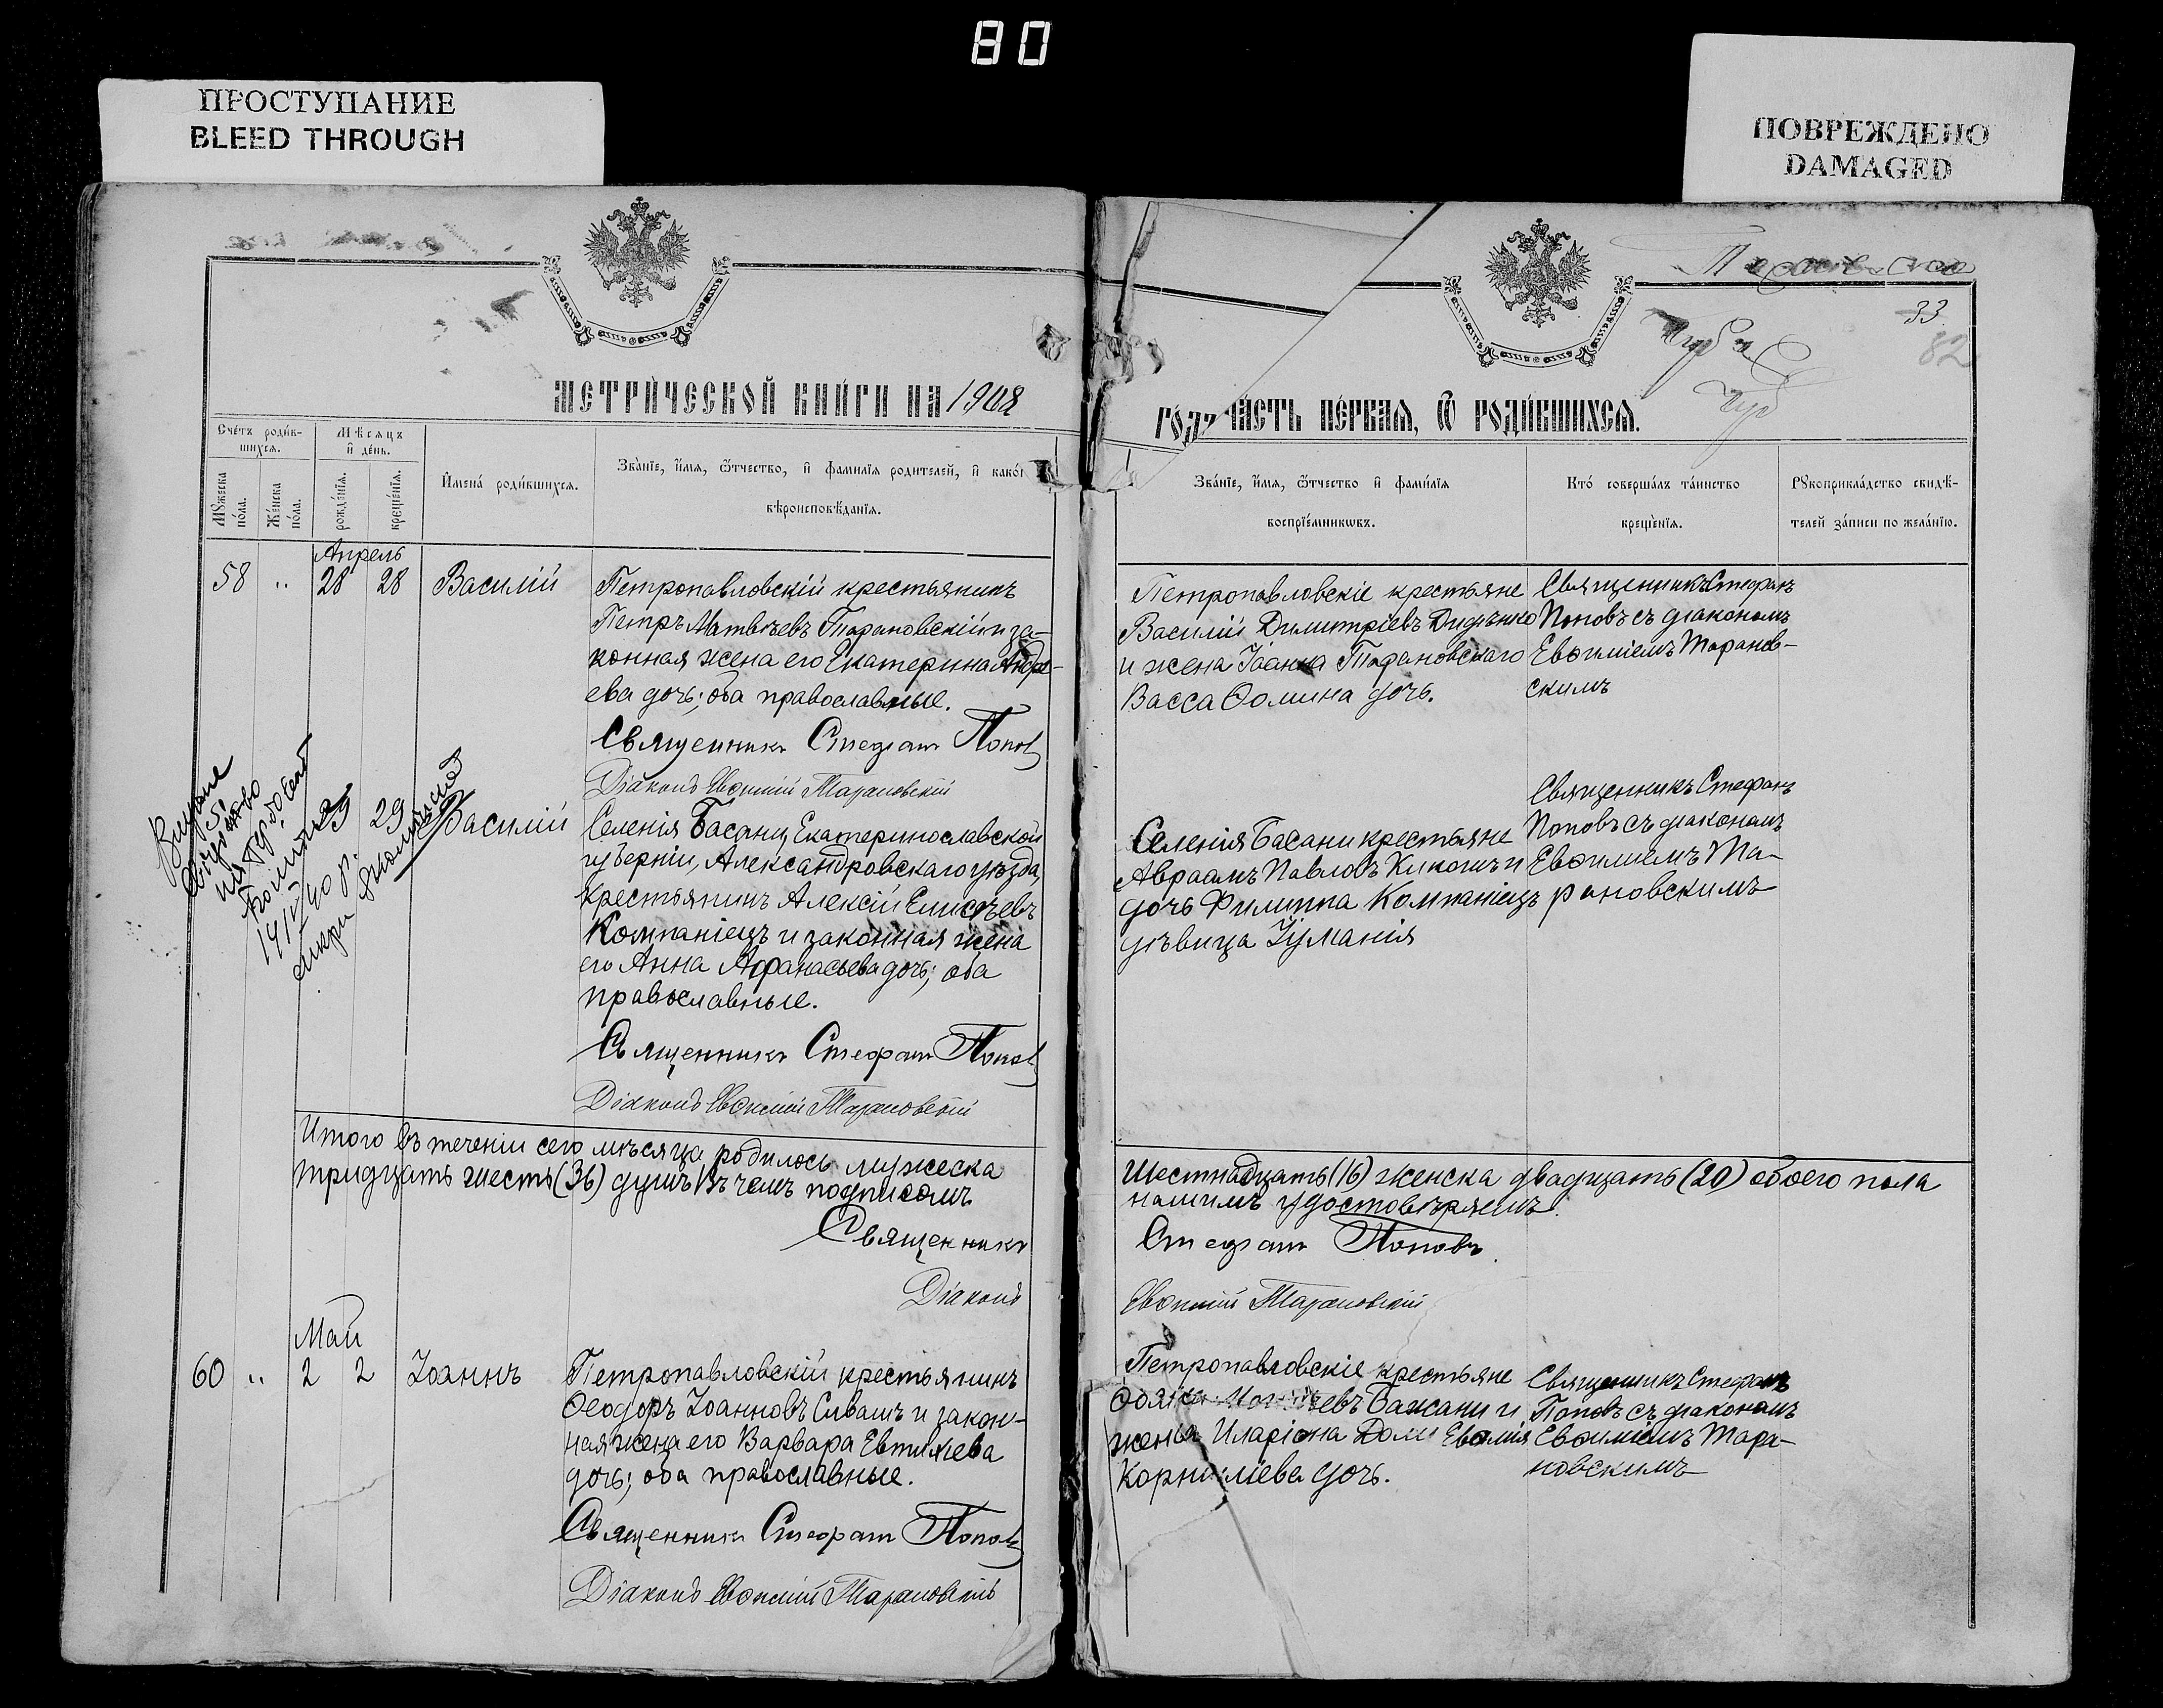 80
ПРОСТУПАНИЕ
BLEED THROUGH
ПОВРЕЖДЕНО
DAMAGED
33
82
МЕТРИЧЕСКОЙ КНИГИ НА 1908
ГОДЪ ЧАСТЬ ПЕРВАЯ, Ѡ РОДИВШИХСЯ.
Счетъ родив-
шихся.
Мѣсяцъ
и день.
Мужеска
пола.
Женска
пола.
рожденія.
крещенія.
Имена родившихся.
Званіе, имя, отчество, и фамилія родителей, и какой
вѣроисповѣданія.
Званіе, имя, отчество и фамилія
воспріемниковъ.
Кто совершалъ таинство
крещенія.
Рукоприкладство свидѣ-
телей записи по желанію.
Апрель
58 " 28 28 Василій
Петропавловскій крестьянинъ
Петръ Матвѣевъ Тарановскій и за-
конная жена его Екатерина Андре-
ева дочь; оба православные.
Священникъ Стефанъ Поповъ
Діаконъ Евѳимій Тарановскій
Петропавловскіе крестьяне
Василій Димитріевъ Дидѣнко
и жена Іоанна Тарановскаго
Васса Ѳомина дочь.
Священникъ Стефанъ
Поповъ съ діакономъ
Евѳиміемъ Таранов-
скимъ
29 29 Василій
Селенія Басани, Екатеринославской
губерніи, Александровскаго уѣзда,
крестьянинъ Алексій Елисѣевъ
Компаніецъ и законная жена
его Анна Афанасьева дочь; оба
православные.
Священникъ Стефанъ Поповъ
Діаконъ Евѳимій Тарановскій
Селенія Басани крестьяне
Авраамъ Павловъ и
дочь Филиппа Компаніецъ
дѣвица
Священникъ Стефанъ
Поповъ съ діакономъ
Евѳиміемъ Та-
рановскимъ
Итого въ теченіи сего мѣсяца родилось мужеска
тридцать шесть (36) душъ. Въ чемъ подписомъ
Священникъ
Діаконъ
Шестнадцать (16) женска двадцать (20) обоего пола
нашимъ удостовѣряемъ.
Стефанъ Поповъ.
Евѳимій Тарановскій
Май
60 " 2 2 Іоаннъ
Петропавловскій крестьянинъ
Ѳеодоръ Іоанновъ Сивашъ и закон-
ная жена его Варвара Евтихіева
дочь; оба православные.
Священникъ Стефанъ Поповъ
Діаконъ Евѳимій Тарановскій
Петропавловскіе крестьяне
Бажани и
жена Иларіона Евѳимія
Корниліева дочь.
Священникъ Стефанъ
Поповъ съ діакономъ
Евѳиміемъ Тара-
новскимъ